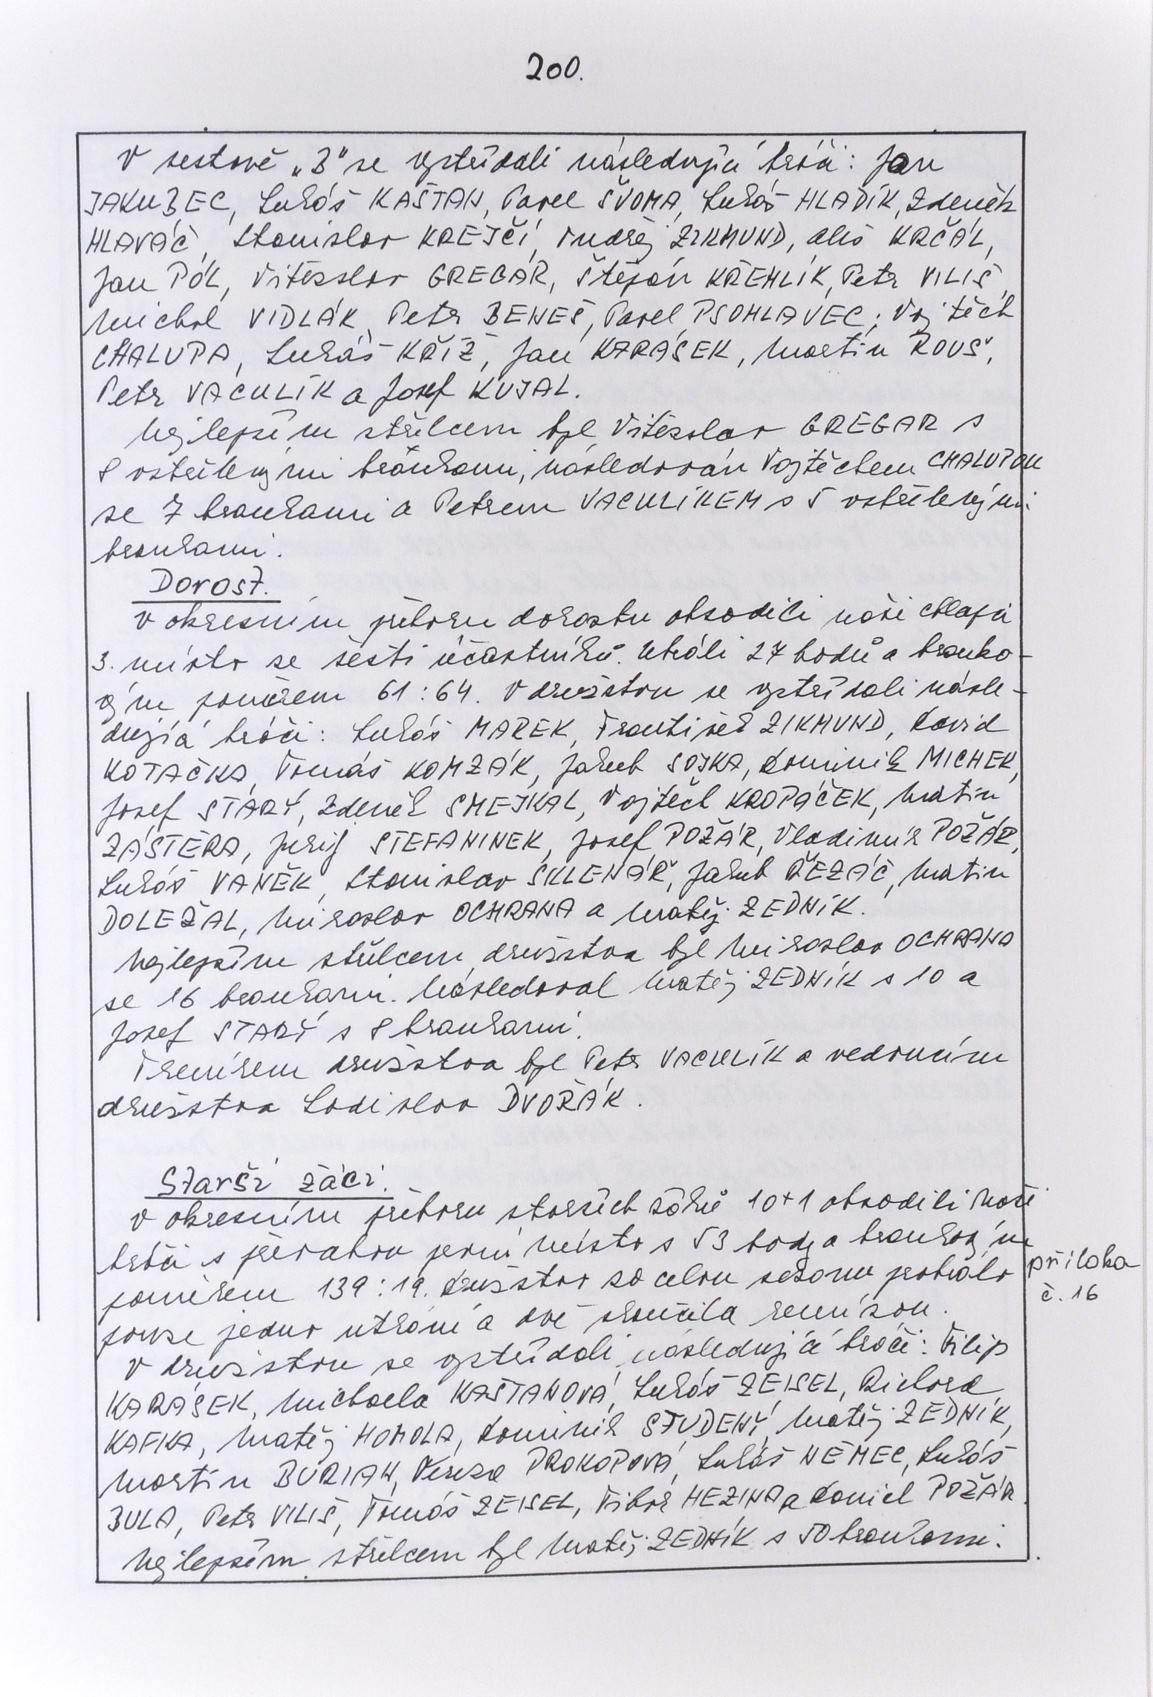 200.
V sestavě „B" se vystřídali následující hráči: Jan
JAKUBEC, Lukáš KAŠTAN, Pavel ŠVOMA, Lukáš HLADÍK, Zdeněk
HLAVÁČ, Stanislav KREJČÍ, Ondřej ZIKMUND, Aleš KRČÁL,
Jan PÓL, Vítězslav GREGAR, Štěpán KŘEHLÍK, Petr VILIŠ,
Michal VIDLÁK, Petr BENEŠ, Pavel PSOHLAVEC, Vojtěch
CHALUPA, Lukáš KŘÍŽ, Jan KARÁSEK, Martin ROUS,
Petr VACULÍK a Josef KUJAL.
Nejlepším střelcem byl Vítězslav GREGAR s
8 vstřelenými brankami, následován Vojtěchem CHALUPOU
se 7 brankami a Petrem VACULÍKEM s 5 vstřelenými
brankami.
Dorost.
V okresním přeboru dorostu obsadili naši chlapci
3. místo se šesti účastníků. Uhráli 27 bodů a branko-
vým poměrem 61:64. V družstvu se vystřídali násle-
dující hráči: Lukáš MAREK, František ZIKMUND, David
KOTAČKA, Tomáš KOMZÁK, Jakub SOJKA, Dominik MICHEK,
Josef STARÝ, Zdeněk SMEJKAL, Vojtěch KROPÁČEK, Martin
ZÁSTĚRA, Jiří STEFANINEK, Josef POŽÁR, Vladimír POŽÁR,
Lukáš VANĚK, Stanislav SKLENÁŘ, Jakub ŘEZÁČ, Martin
DOLEŽAL, Miroslav OCHRANA a Matěj ZEDNÍK.
Nejlepším střelcem družstva byl Miroslav OCHRANA
se 16 brankami. Následoval Matěj ZEDNÍK s 10 a
Josef STARÝ s 8 brankami.
Trenérem družstva byl Petr VACULÍK a vedoucím
družstva Ladislav DVOŘÁK.
Starší žáci.
V okresním přeboru starších žáků 10+1 obsadili naši
hráči s přívahou první místo s 53 body a brankovým
poměrem 139:19. Družstvo za celou sezonu prohrálo
pouze jedno utkání a dvě skončila remízou.
příloha
č. 16
V družstvu se vystřídali následující hráči: Filip
KARÁSEK, Michaela KAŠTANOVÁ, Lukáš ZEISEL, Richard
KAFKA, Matěj HOMOLA, Dominik STUDENÝ, Matěj ZEDNÍK,
Martin BURIAN, Tereza PROKOPOVÁ, Lukáš NĚMEC, Lukáš
BULA, Petr VILIŠ, Tomáš ZEISEL, Tibor HEZINA a Daniel POŽÁR.
Nejlepším střelcem byl Matěj ZEDNÍK s 50 brankami.